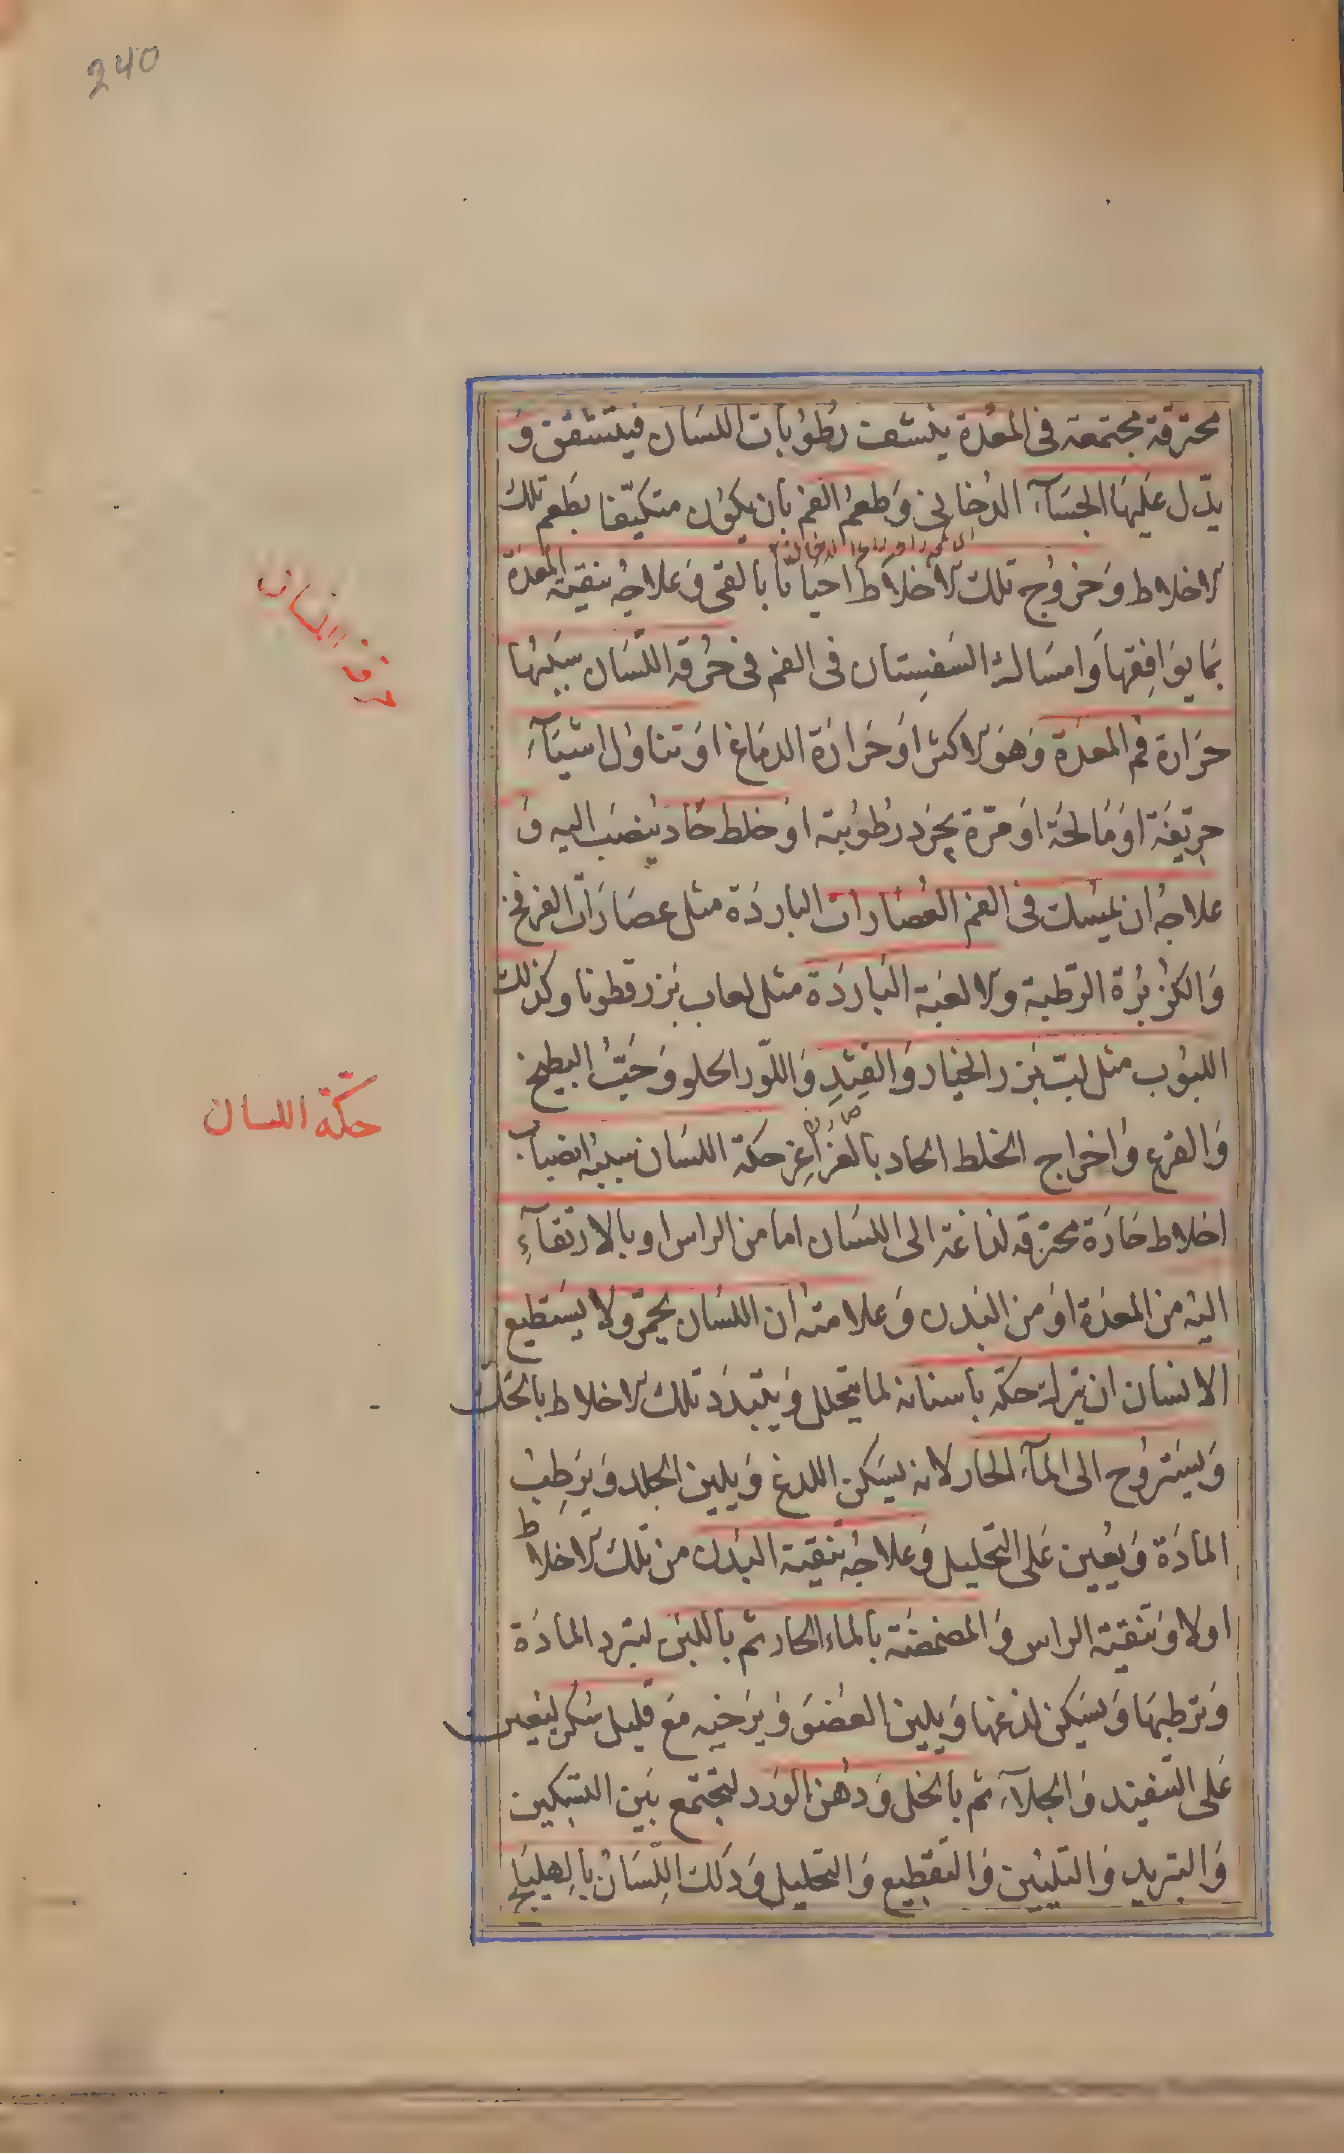 240
محترقة مجتمعة فى المعدة ينشف رطوبات اللسان فيتشقق و
يدل عليها الجشآء الدخانى وطعم الفم بان يكون متكيفا بطعم تلك
الاخلاط وخروج تلك الاخلاط احيانا بالقى وعلاجه تنقية المعدة
بما يوافقها وامساك السفستان فى الفم فى حرقة اللسان سببها
حرقة اللسان
حرارة فم المعدة وهو الاكثر او حرارة الدماغ او تناول اشيآء
حريفة او مالحة او مرة يجرد رطوبته او خلط حاد ينصب اليه و
علاجه ان يمسك فى الفم العصارات الباردة مثل عصارات الفرفخ
والكزبرة الرطبة والالعبة الباردة مثل لعاب بزر قطونا وكذلك
اللبوب مثل لب بزر الخيار والقثد واللوز الحلو وحب البطيخ
والقرع واخراج الخلط الحاد بالغراغر حكة اللسان سببه انصباب
حكة اللسان
اخلاط حادة محترقة لذاعة الى اللسان اما من الراس او بالارتقآء
اليه من المعدة او من البدن وعلامته ان اللسان يحمر ولا يستطيع
الانسان ان يترك حكه باسنانه لما يتحلل ويتبدد تلك الاخلاط بالحك
ويستروح الى المآء الحار لانه يسكن اللدغ ويلين الجلد ويرطب
المادة ويعين على التحليل وعلاجه تنقية البدن من تلك الاخلاط
اولا وتنقية الراس والمضمضة بالماء الحار ثم باللبن ليبرد المادة
وترطبها ويسكن لذعها ويلين العضو ويرخيه مع قليل سكر ليعين
على التنفيذ والجلآء ثم بالخل ودهن الورد ليجتمع بين التسكين
والتبريد والتليين والتقطيع والتحليل ودلك اللسان بالهليلج